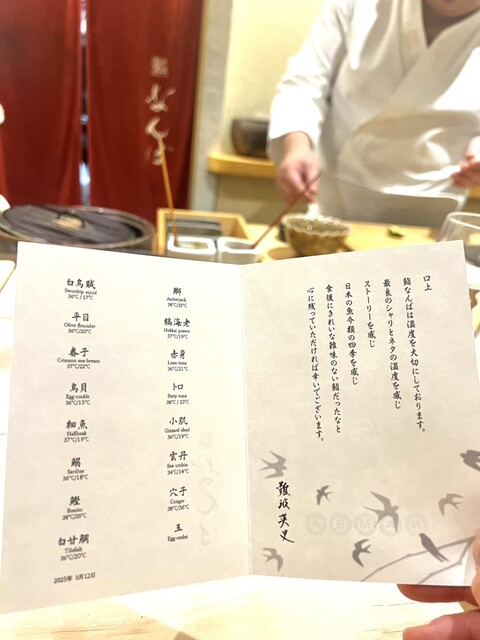 鮨
なんば
白烏賊
Swordtip squid
36℃/17℃
平目
Olive flounder
36℃/20℃
春子
Crimson sea-bream
37℃/22℃
鳥貝
Egg-cockle
36℃/15℃
細魚
Halfbeak
37℃/19℃
鰯
Sardine
36℃/18℃
鰹
Bonito
38℃/20℃
白甘鯛
Tilefish
36℃/20℃
2025年 3月12日
鰤
Amberjack
38℃/25℃
縞海老
Hokkai prawn
37℃/19℃
赤身
Lean tuna
36℃/21℃
トロ
Fatty tuna
38℃/23℃
小肌
Gizzard shad
36℃/19℃
雲丹
Sea urchin
34℃/14℃
穴子
Conger
38℃/36℃
玉
Egg omlet
口上
鮨なんばは温度を大切にしております。
最良のシャリとネタの温度を感じ
ストーリーを感じ
日本の魚介類の四季を感じ
食後にきれいな雑味のない鮨だったなと
心に残っていただければ幸いでございます。
難波英史